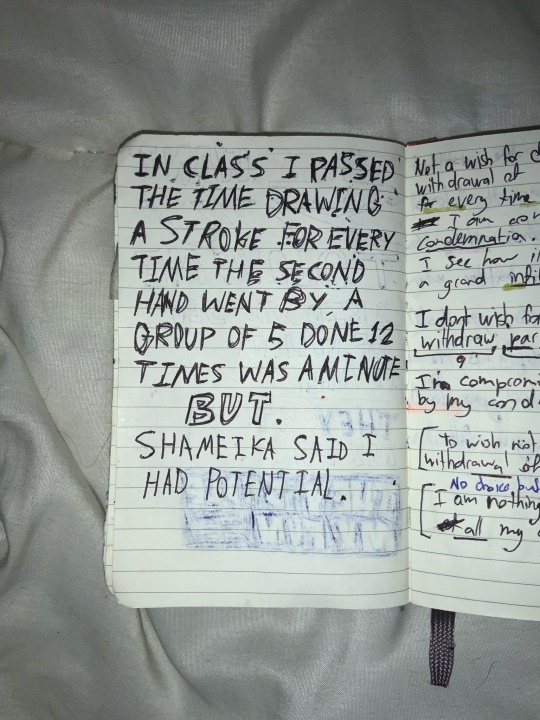 IN CLASS I PASSED
THE TIME DRAWING
A STROKE FOR EVERY
TIME THE SECOND
HAND WENT BY A
GROUP OF 5 DONE 12
TIMES WAS A MINUTE
BUT.
SHAMEIKA SAID I
HAD POTENTIAL.
Not a wish for
withdrawal of
for every time
I am
Condemnation.
I see how
a grand
I dont wish for
withdraw,
9
I'm
by my
to wish not
withdrawal of
No choice but
I am nothing
all my